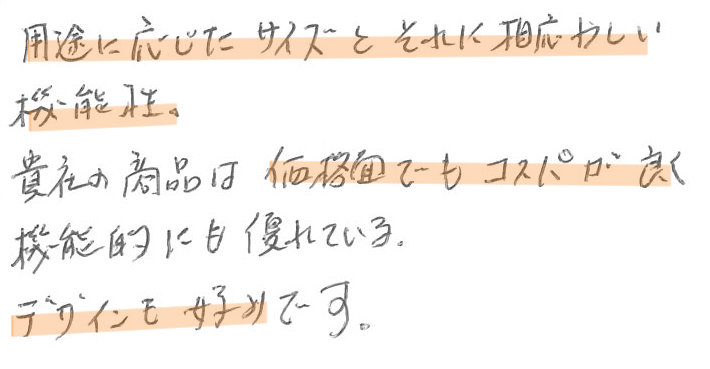 用途に応じたサイズとそれに相応わしい
機能性。
貴社の商品は価格面でもコスパが良く
機能的にも優れている。
デザインも好めです。